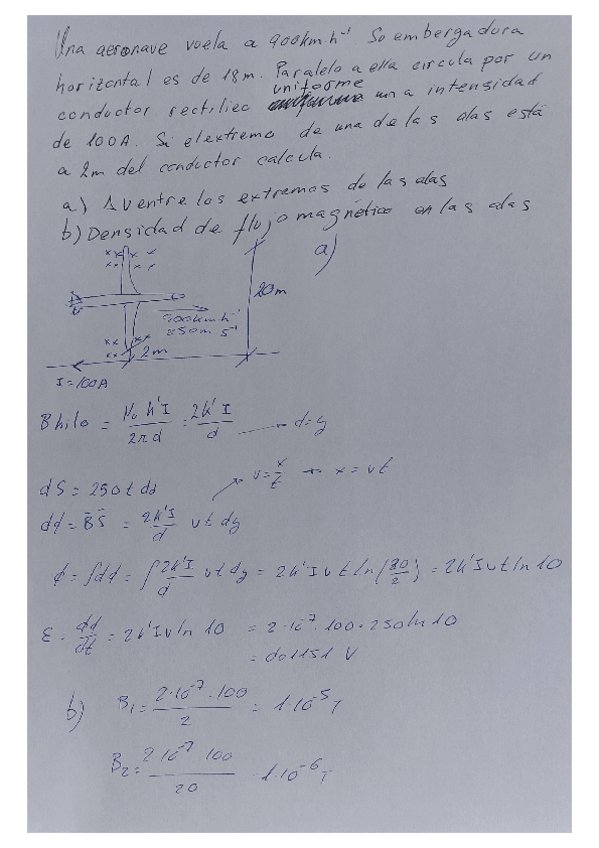 Una aeronave vuela a 900km.h⁻¹. So embergadura
horizontal es de 18m. Paralelo a ella circula por un
uniforme
conductor rectilieo una intensidad
de 100A. Si el extremo de una de las alas está
a 2m del conductor calcula.
a) ΔV entre los extremos de las alas
b) Densidad de flujo magnético en las alas
a)
x x x x
x x x x
20m
900km.h⁻¹
250m s⁻¹
2m
I=100A
B hilo = μ₀ k' I / 2π d = 2k' I / d → d=y
v = x/t → x = vt
dS = 250 t dd
dϕ = B̄ S̄ = 2k'I / d vt dy
ϕ = ∫dϕ = ∫ 2k'I / d vt dy = 2k'I v t ln(20/2) = 2k'I vt ln 10
ε = dϕ/dt = 2k'I v ln 10 = 2·10⁻⁷.100.250 ln 10
= 0,01151 V
b) B₁ = 2·10⁻⁷.100 / 2 = 1·10⁻⁵ T
B₂ = 2·10⁻⁷.100 / 20 1·10⁻⁶ T